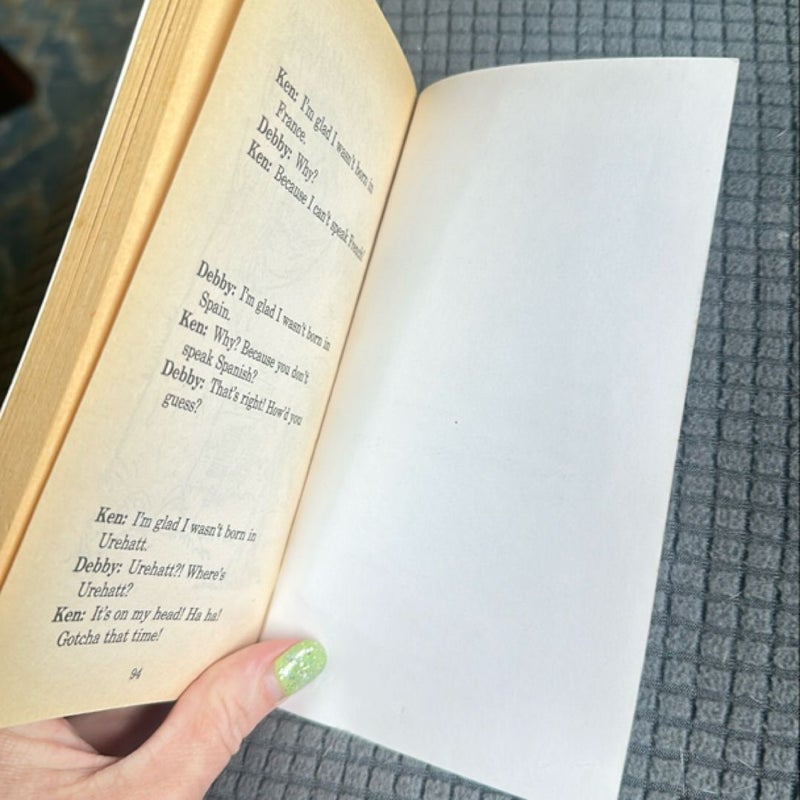 Ken: I'm glad I wasn't born in
France.
Debby: Why?
Ken: Because I can't speak French!
Debby: I'm glad I wasn't born in
Spain.
Ken: Why? Because you don't
speak Spanish?
Debby: That's right! How'd you
guess?
Ken: I'm glad I wasn't born in
Urehatt.
Debby: Urehatt?! Where's
Urehatt?
Ken: It's on my head! Ha ha!
Gotcha that time!
94